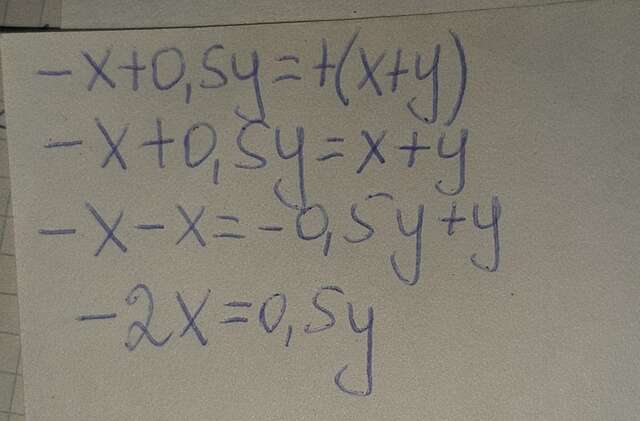 -x+0,5y=+(x+y)
-x+0,5y=x+y
-x-x=-0,5y+y
-2x=0,5y